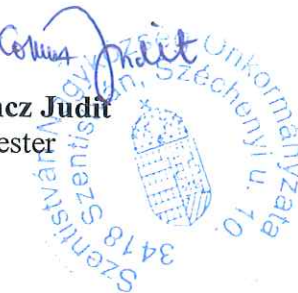 Judit
cz Judit
ester
Szentistván Nagyközség Önkormányzata
3418 Szentistván, Széchenyi u. 10.